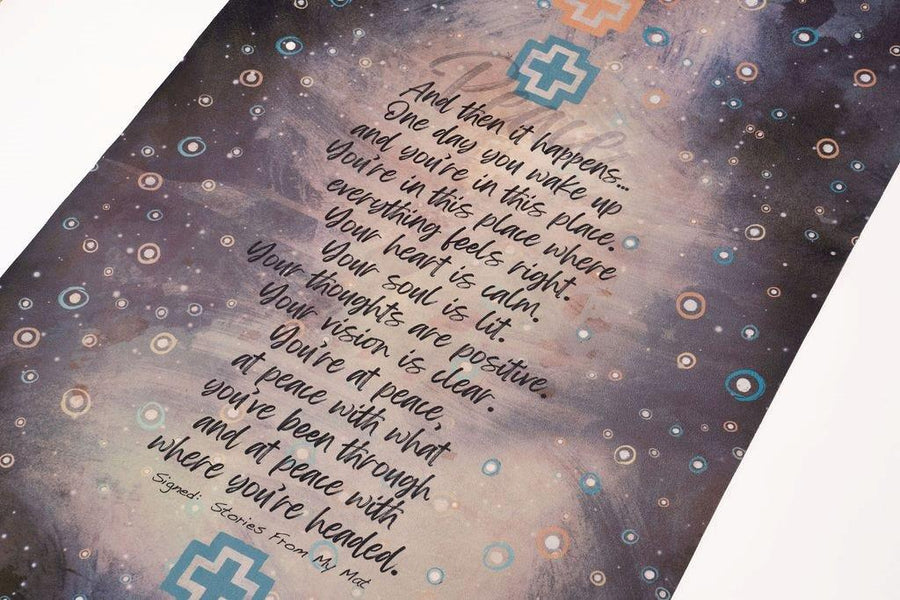 Peace
And then it happens...
One day you wake up
and you're in this place.
You're in this place where
everything feels right.
Your heart is calm.
Your soul is lit.
Your thoughts are positive.
Your vision is clear.
You're at peace,
at peace with what
you've been through
and at peace with
where you're headed.
Signed: Stories From My Mat